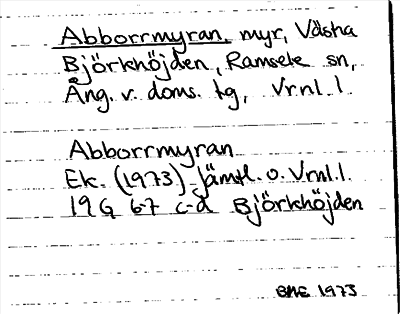 Abborrmyran, myr, Västra
Björkhöjden, Ramsele sn,
Ång. v. doms. tg, Vrnl. l.
Abborrmyran
Ek. (1973) Jämtl. o. Vrnl. l.
19G 6-7 c-d Björkhöjden
BME 1973